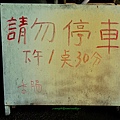 請勿停車
下午1点30分